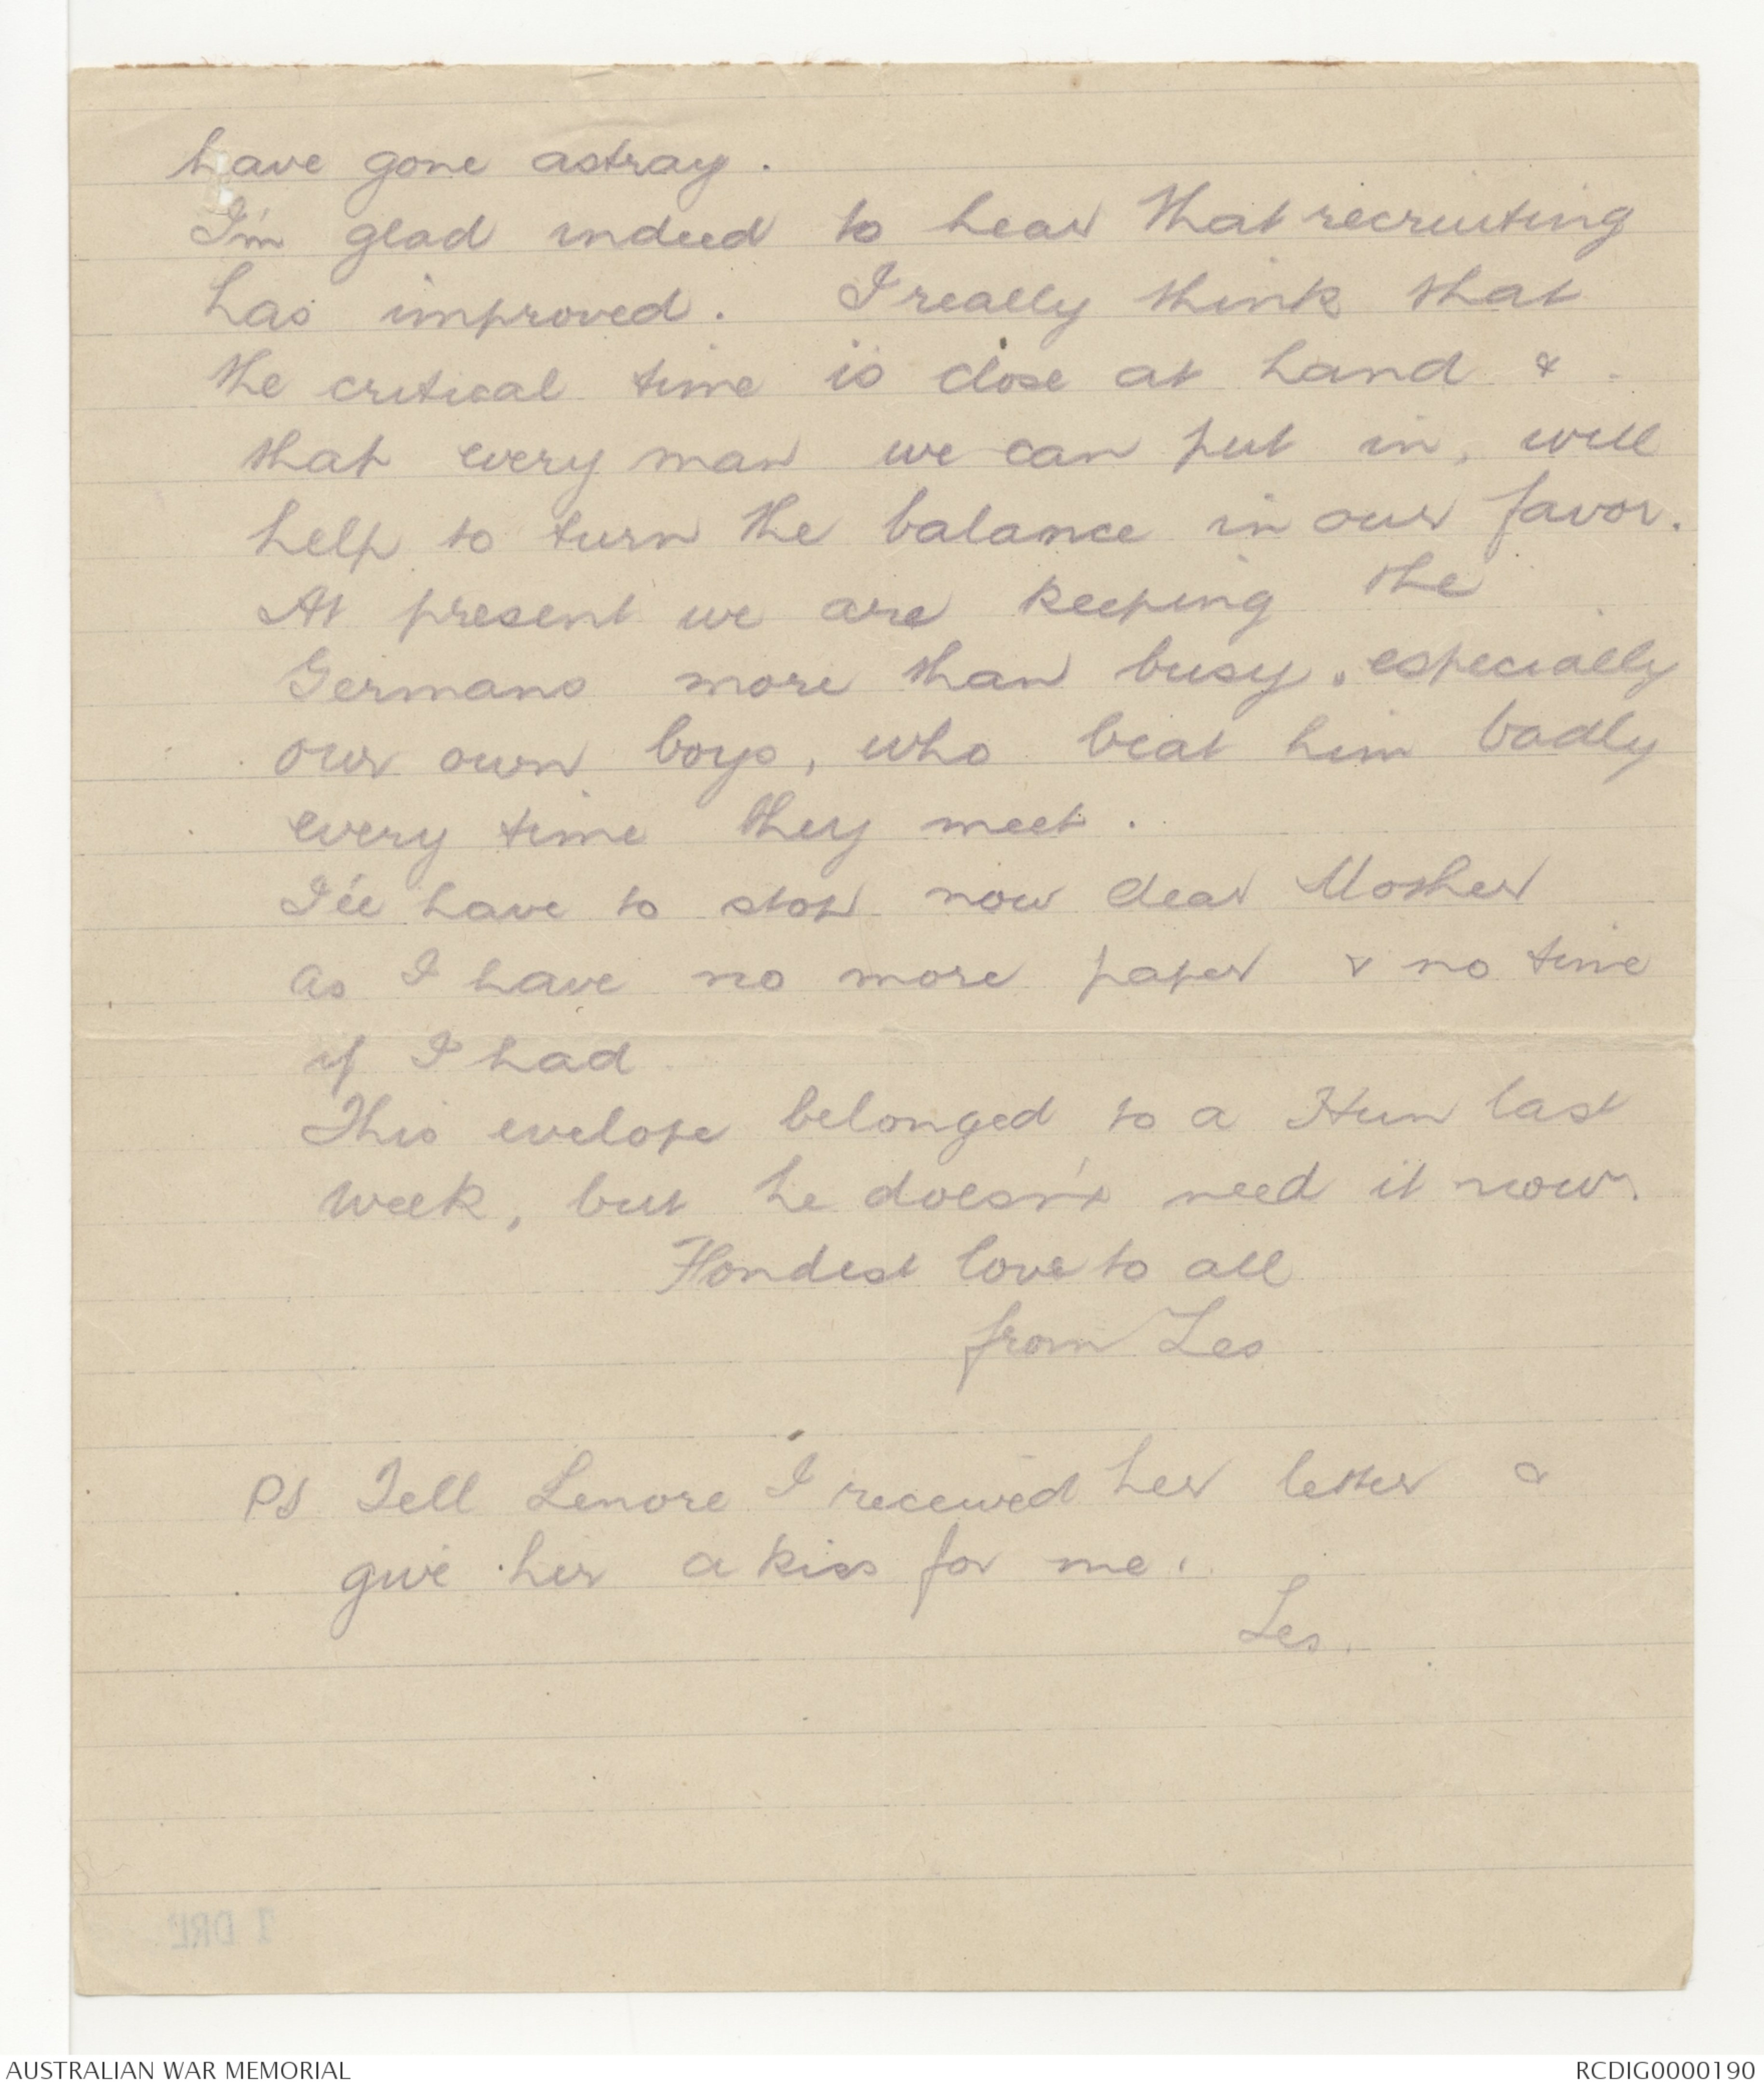 have gone astray.
I'm glad indeed to hear that recruiting
has improved. I really think that
the critical time is close at hand &
that every man we can put in, will
help to turn the balance in our favor.
At present we are keeping the
Germans more than busy, especially
our own boys, who beat him badly
every time they meet.
I'll have to stop now dear Mother
as I have no more paper & no time
if I had
This evelope belonged to a Hun last
week, but he doesn't need it now.
Fondest love to all
from Les
PS Tell Lenore I received her letter &
give her a kiss for me.
Les.
1 DRL
AUSTRALIAN WAR MEMORIAL
RCDIG0000190